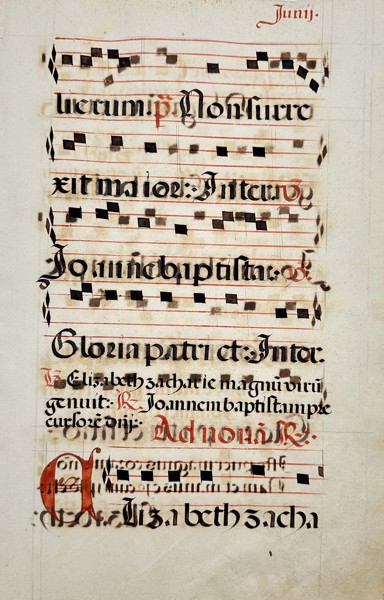 Junij.
lierum. p̃. Non surre
xit maior: Inter. ℣
Joanne baptista. ℣.
Gloria patri et: Inter.
℣. Elizabeth zacharie magnũ virũ
genuit: ℟. Joannem baptistam pre
cursorẽ dñi:
Ad nonã ℟.
Elizabeth zacha